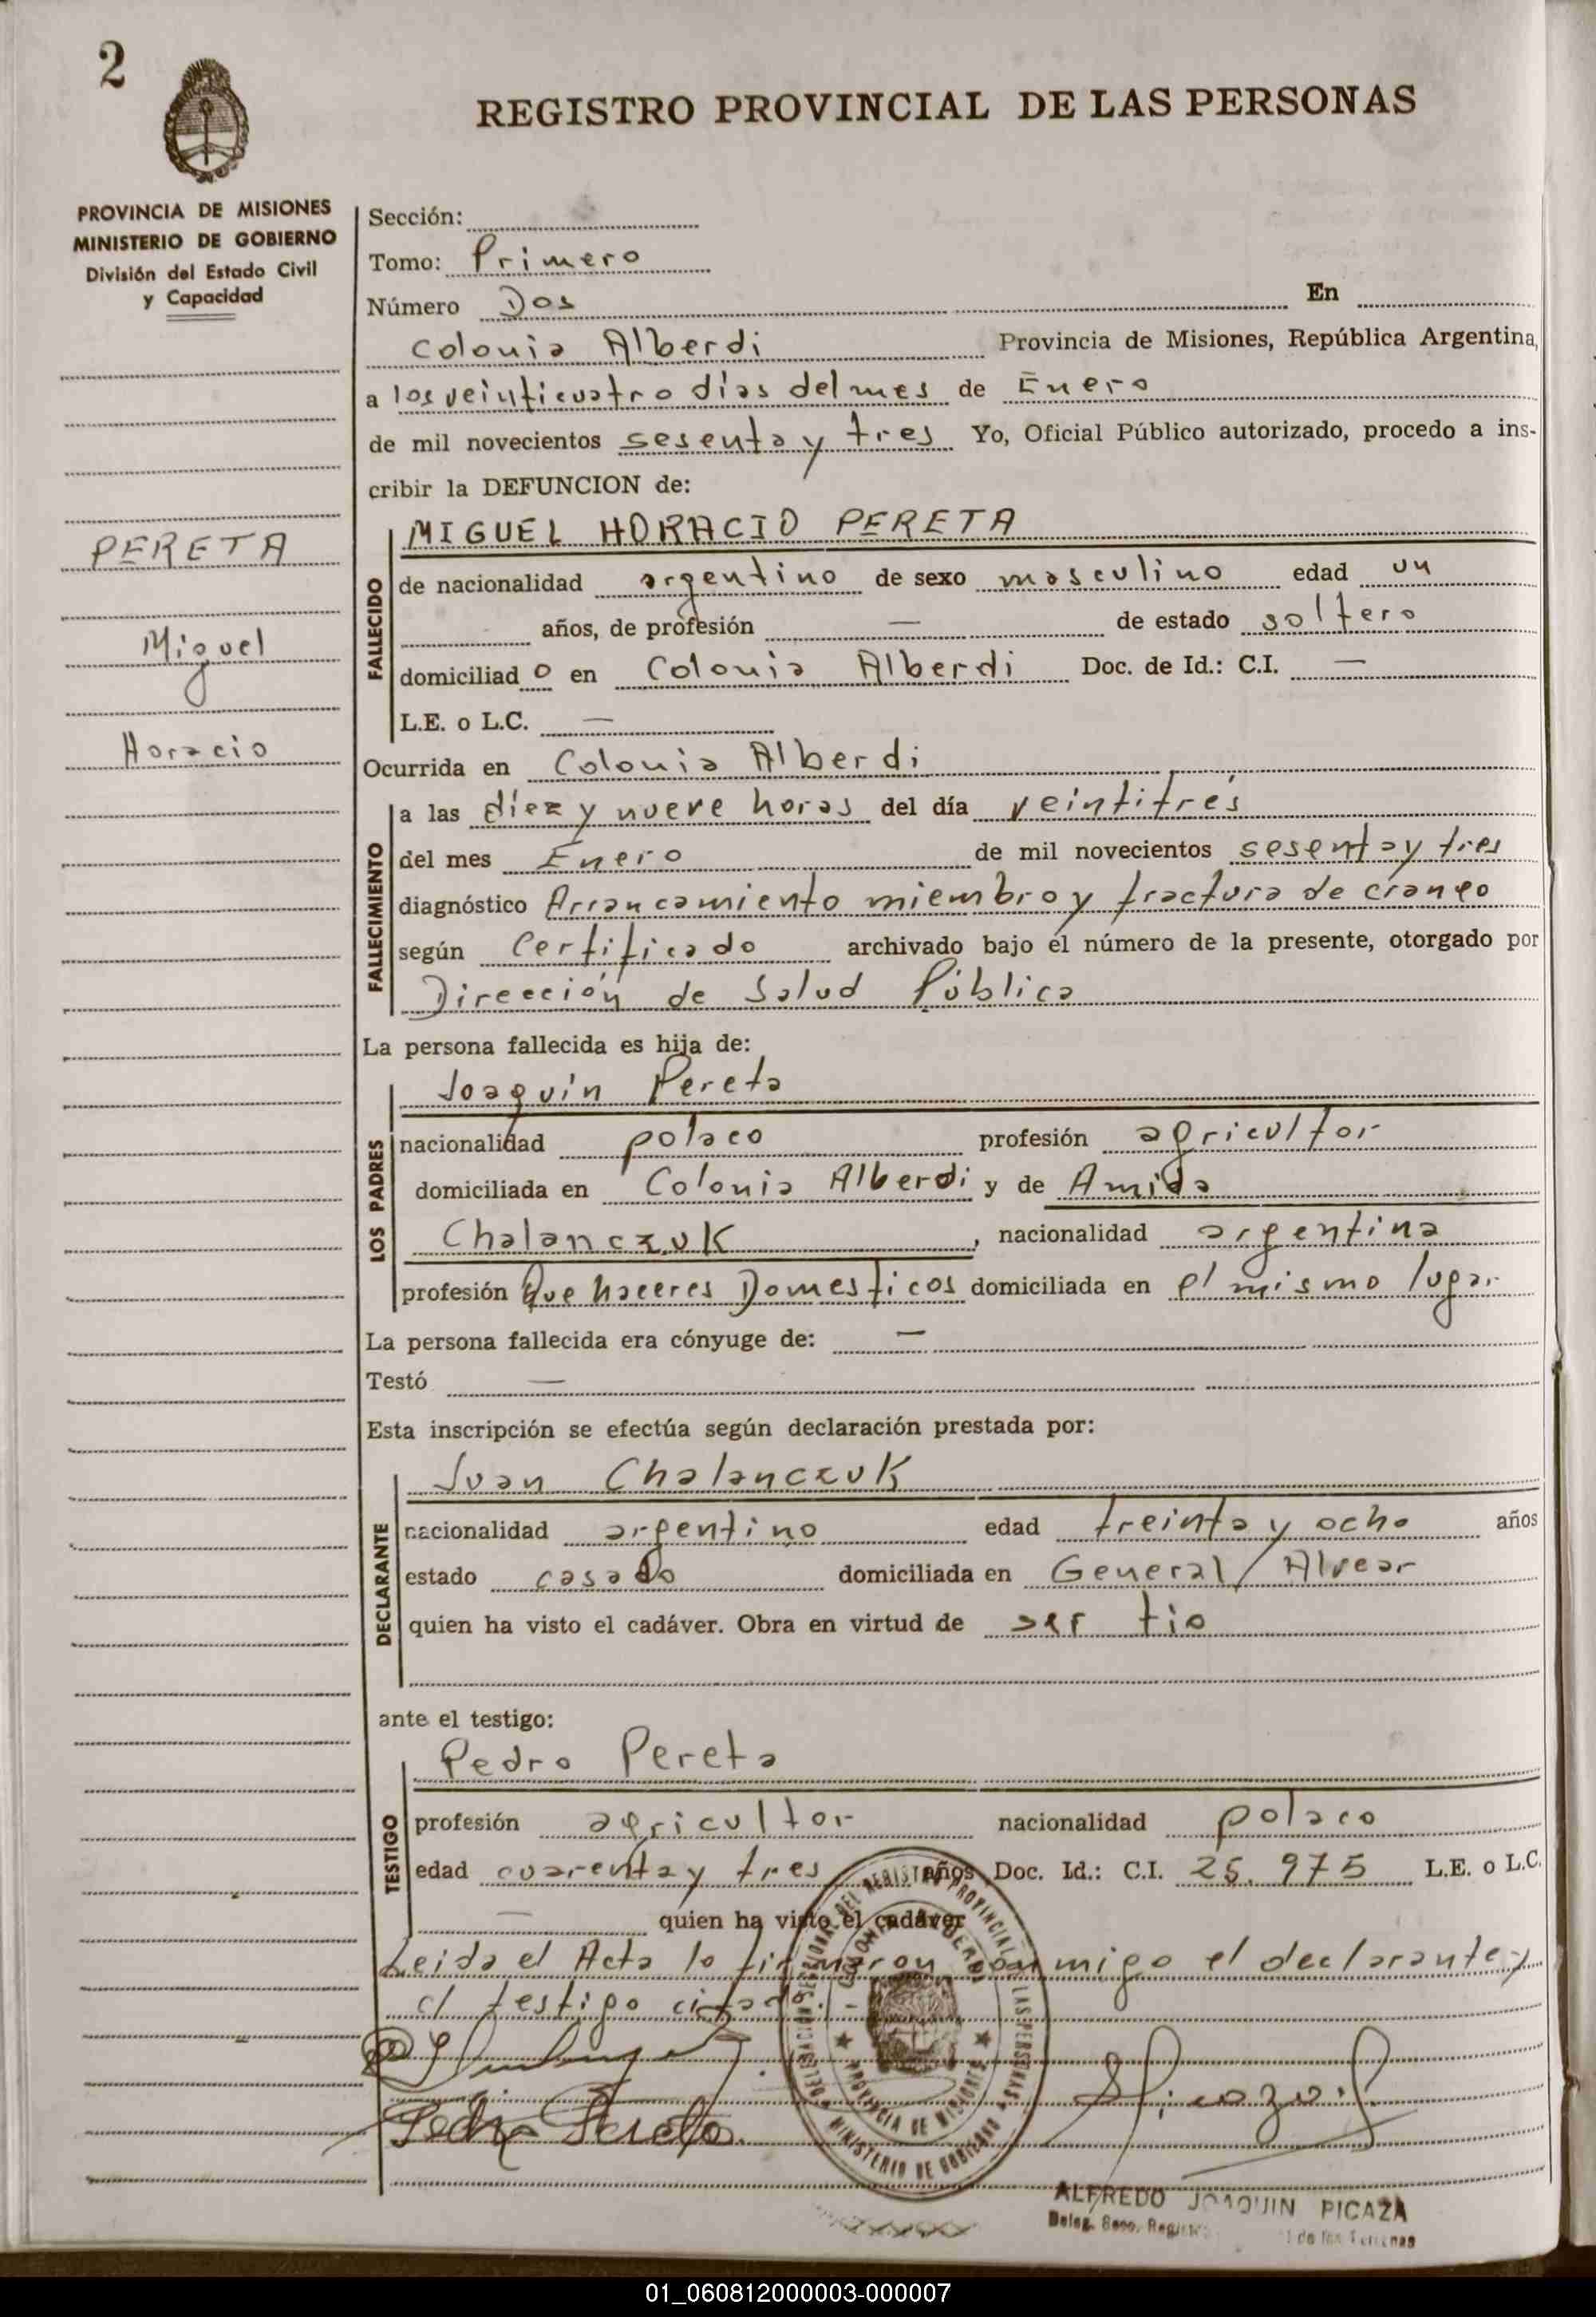 2
REGISTRO PROVINCIAL DE LAS PERSONAS
PROVINCIA DE MISIONES
MINISTERIO DE GOBIERNO
División del Estado Civil
y Capacidad
PERETA
Miguel
Horacio
Sección:
Tomo: Primero
Número Dos En
Colonia Alberdi Provincia de Misiones, República Argentina,
a los veinticuatro dias del mes de Enero
de mil novecientos sesenta y tres Yo, Oficial Público autorizado, procedo a ins-
cribir la DEFUNCION de:
FALLECIDO
MIGUEL HORACIO PERETA
de nacionalidad argentino de sexo masculino edad un
años, de profesión — de estado soltero
domiciliad o en Colonia Alberdi Doc. de Id.: C.I. —
L.E. o L.C. —
Ocurrida en Colonia Alberdi
FALLECIMIENTO
a las diez y nueve horas del día veintitrés
del mes Enero de mil novecientos sesenta y tres
diagnóstico Arrancamiento miembro y fractura de craneo
según Certificado archivado bajo el número de la presente, otorgado por
Dirección de Salud Pública
La persona fallecida es hija de:
LOS PADRES
Joaquín Pereta
nacionalidad polaco profesión agricultor
domiciliada en Colonia Alberdi y de Amida
Chalanczuk, nacionalidad argentina
profesión Que haceres Domesticos domiciliada en el mismo lugar
La persona fallecida era cónyuge de: —
Testó —
Esta inscripción se efectúa según declaración prestada por:
DECLARANTE
Juan Chalanczuk
nacionalidad argentino edad treinta y ocho años
estado casado domiciliada en General Alvear
quien ha visto el cadáver. Obra en virtud de ser tio
ante el testigo:
TESTIGO
Pedro Pereta
profesión agricultor nacionalidad polaco
edad cuarenta y tres años Doc. Id.: C.I. 25.975 L.E. o L.C.
— quien ha visto el cadáver
Leida el Acta la firmaron conmigo el declarante y
el testigo citado.
DELEGACION SECCIONAL DEL REGISTRO PROVINCIAL DE LAS PERSONAS
COLONIA ALBERDI
PROVINCIA DE MISIONES
MINISTERIO DE GOBIERNO
Pedro Pereta
ALFREDO JOAQUIN PICAZA
Deleg. Secc. de las Personas
01_060812000003-000007